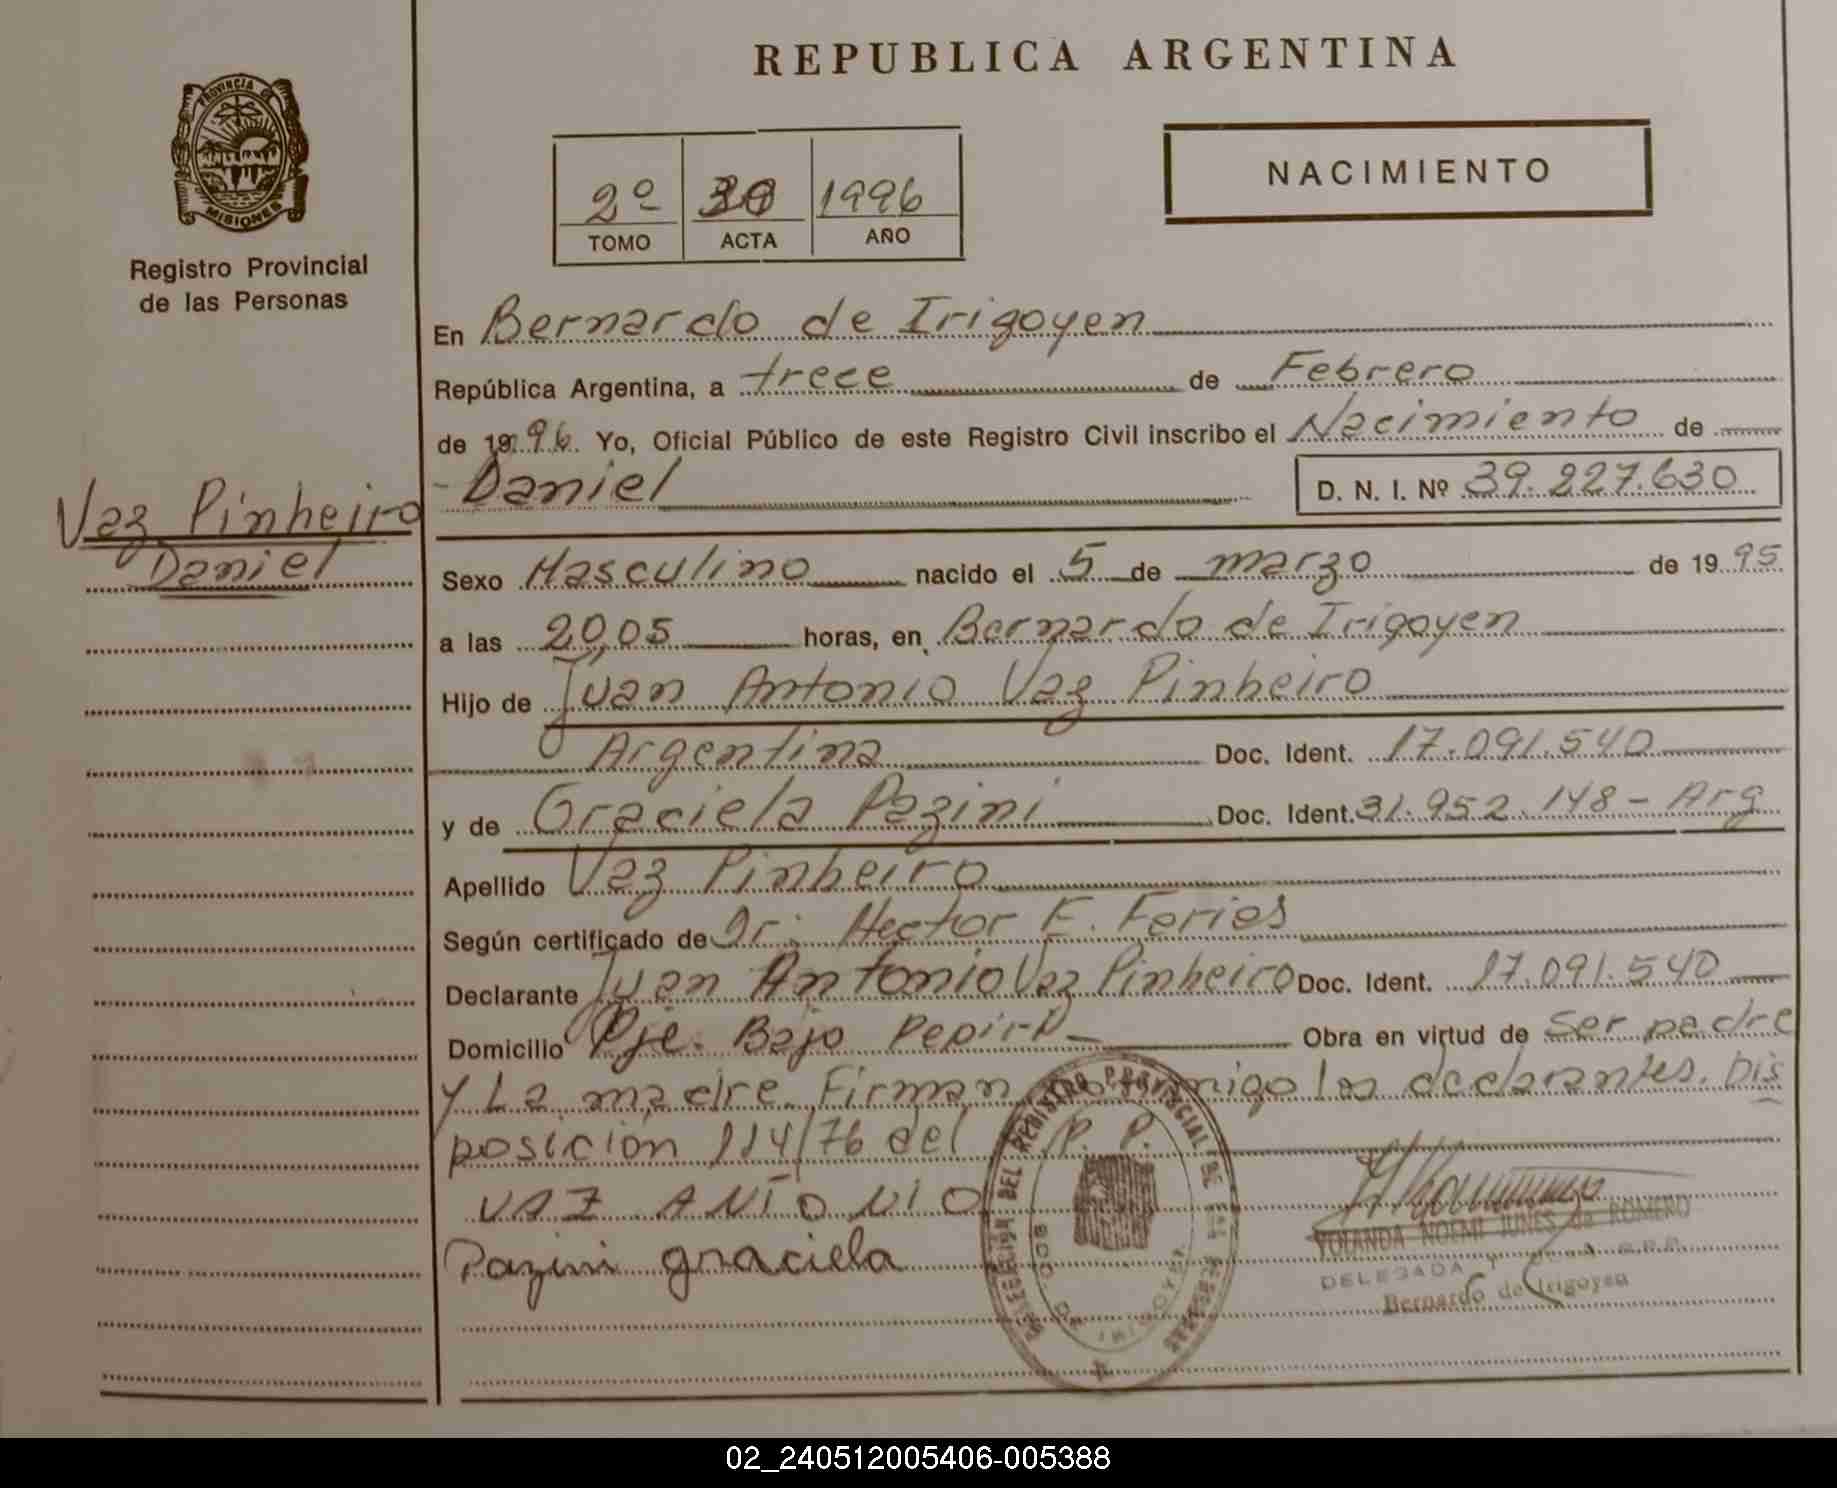 REPUBLICA ARGENTINA
PROVINCIA DE
MISIONES
Registro Provincial
de las Personas
2º 1996
TOMO ACTA AÑO
NACIMIENTO
En Bernardo de Irigoyen
República Argentina, a trece de Febrero
de 1996. Yo, Oficial Público de este Registro Civil inscribo el Nacimiento de
Daniel D. N. I. Nº 39.227.630
Vaz Pinheiro
Daniel
Sexo Masculino nacido el 5 de marzo de 1995
a las 20,05 horas, en Bernardo de Irigoyen
Hijo de Juan Antonio Vaz Pinheiro
Argentina Doc. Ident. 17.091.540
y de Graciela Pazini Doc. Ident. 31.952.148 - Arg
Apellido Vaz Pinheiro
Según certificado de Dr. Hector E. Ferios
Declarante Juan Antonio Vaz Pinheiro Doc. Ident. 17.091.540
Domicilio Pje. Bajo Pepiri- Obra en virtud de ser padre
y La madre. Firman los declarantes. Dis
posición 114/76 del P. P.
VAZ ANTONIO
Pazini graciela
DEL REGISTRO PROVINCIAL DE LAS PERSONAS
BDO. DE IRIGOYEN
YOLANDA NOEMI JUNES de ROMERO
DELEGADA R.P.P.
Bernardo de Irigoyen
02_240512005406-005388